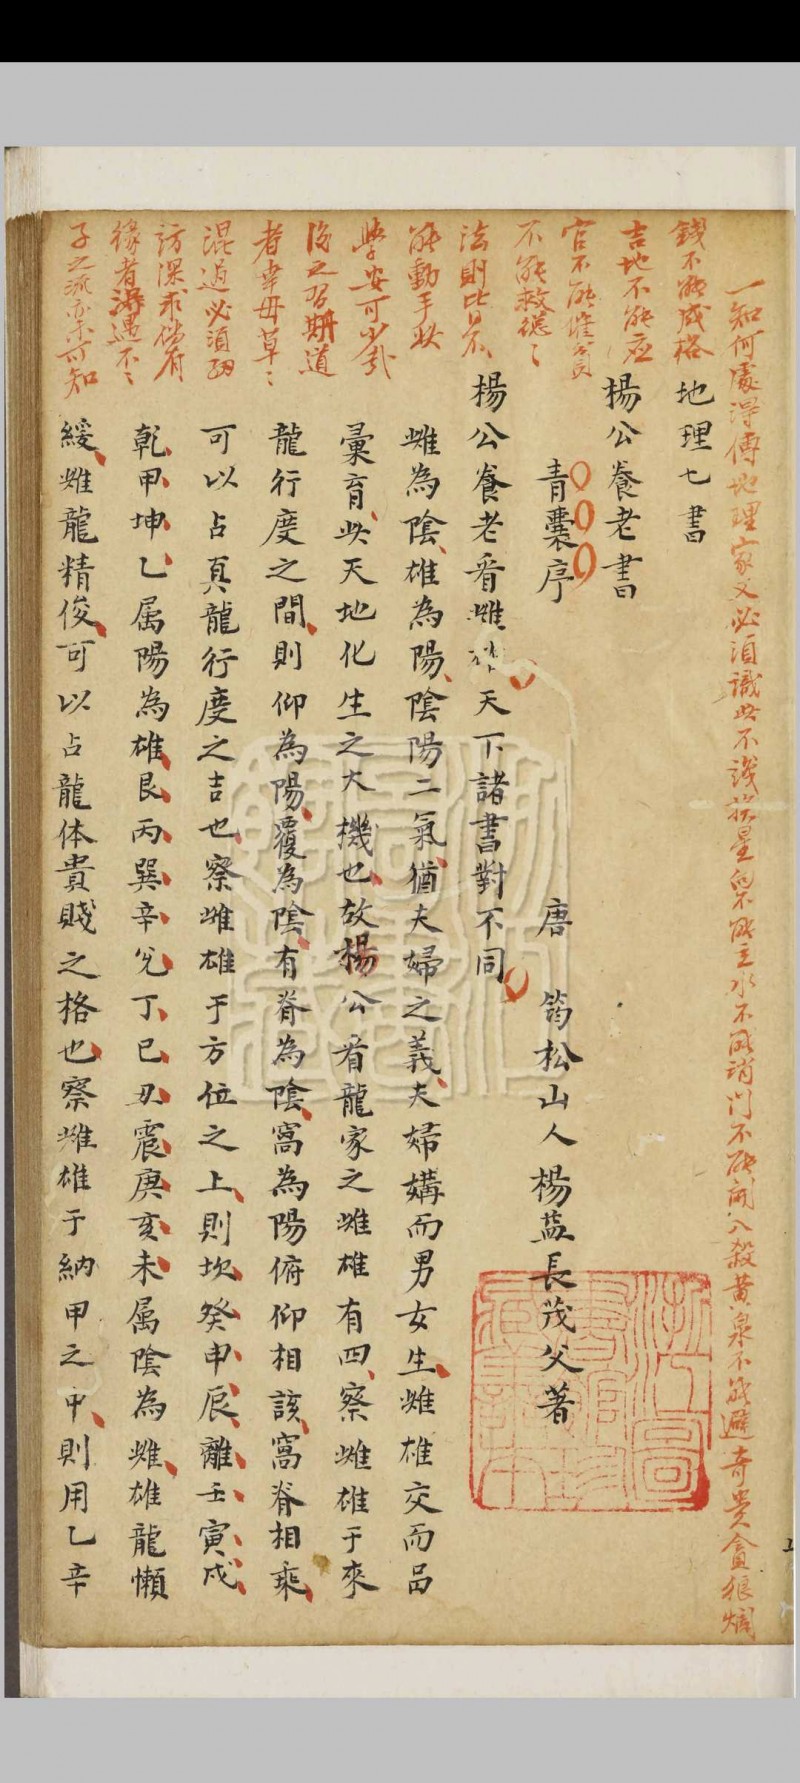 一知何處浮傳地理家又必須識此不識於星
錢不能成格
吉地不能应
官不能催貧
不能救總々
法則比景
能動手此
學安可少哉
後之習期道
者幸毋草々
混過必須細
訪深求偶有
緣者得遇不々
子之流亦未可知
地理七書
楊公養老書
青囊序
唐 筠松山人楊益長茂父著
楊公養老看雌雄天下諸書對不同
雌為陰雄為陽陰陽二氣猶夫婦之義夫婦媾而男女生雌雄交而品
彙育此天地化生之大機也故楊公看龍家之雌雄有四察雌雄于來
龍行度之間則仰為陽覆為陰有脊為陰窩為陽俯仰相該窩脊相乘
可以占真龍行度之吉也察雌雄于方位之上則坎癸申辰離壬寅戌
乾甲坤乙属陽為雄艮丙巽辛兌丁巳丑震庚亥未属陰為雌雄龍懶
緩雌龍精俊可以占龍体貴賤之格也察雌雄于納甲之中則用乙辛
浙江圖書館珍藏善本